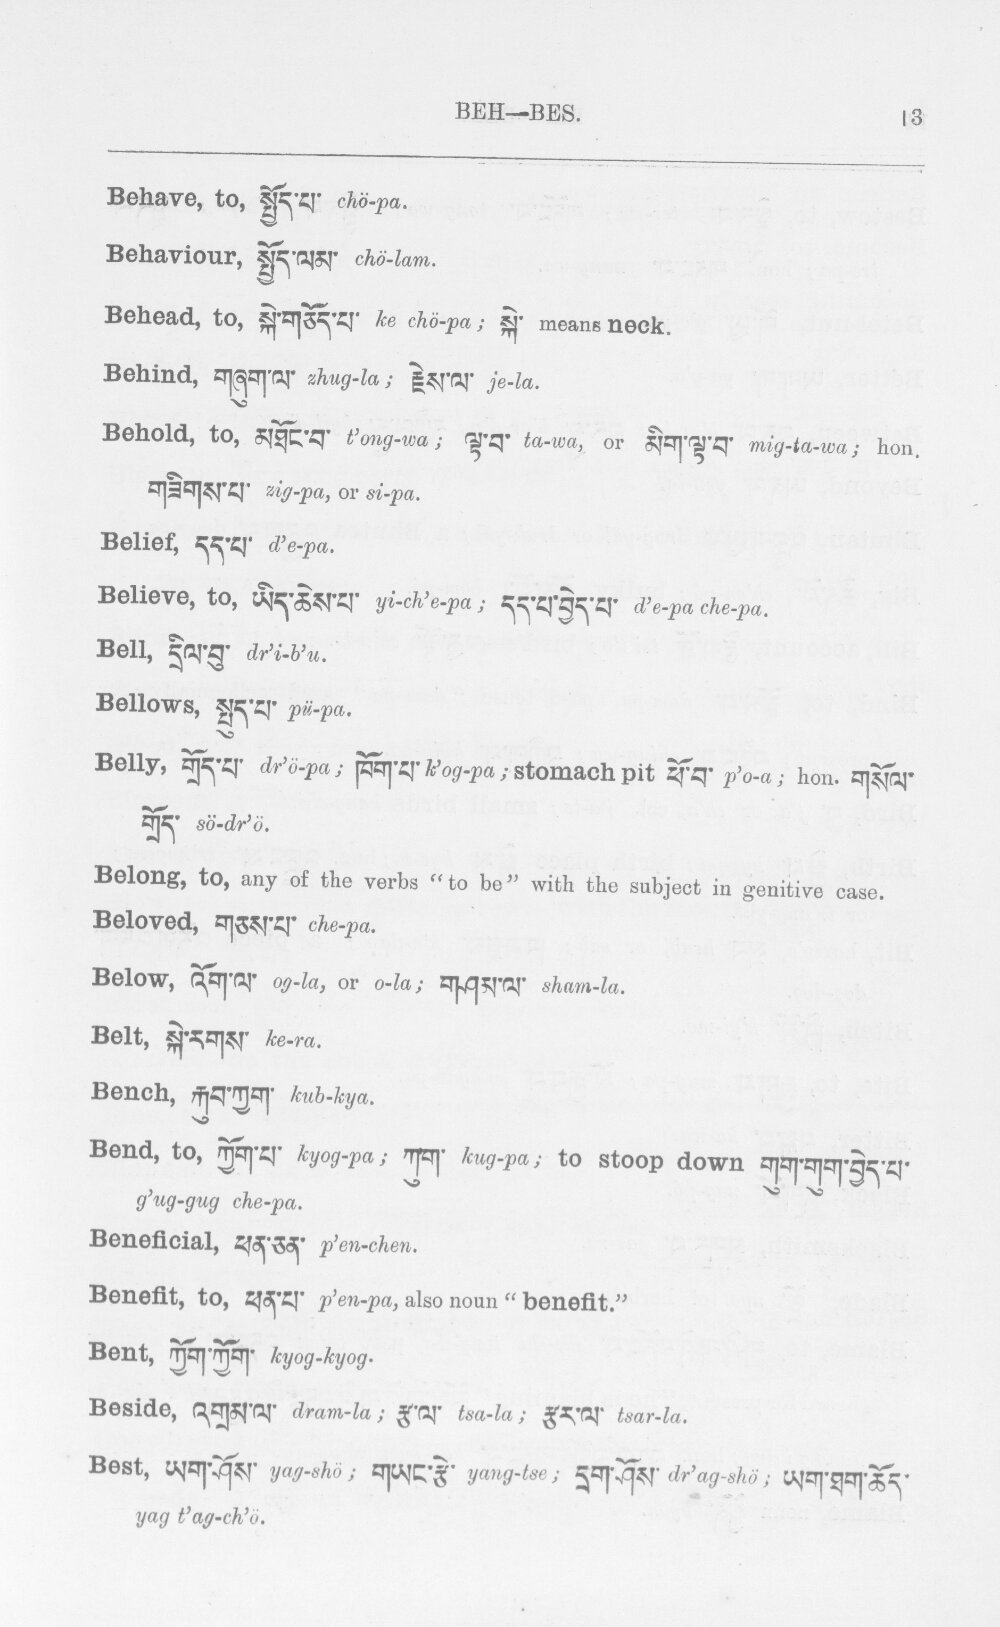 BEH—BES.
13
Behave, to, སྤྱོད་པ་ chö-pa.
Behaviour, སྤྱོད་ལམ་ chö-lam.
Behead, to, སྐེ་གཅོད་པ་ ke chö-pa; སྐེ་ means neck.
Behind, གཞུག་ལ་ zhug-la; རྗེས་ལ་ je-la.
Behold, to, མཐོང་བ་ t’ong-wa; ལྟ་བ་ ta-wa, or མིག་ལྟ་བ་ mig-ta-wa; hon.
གཟིགས་པ་ zig-pa, or si-pa.
Belief, དད་པ་ d’e-pa.
Believe, to, ཡིད་ཆེས་པ་ yi-ch’e-pa; དད་པ་བྱེད་པ་ d’e-pa che-pa.
Bell, དྲིལ་བུ་ dr’i-b’u.
Bellows, སྦུད་པ་ pü-pa.
Belly, གྲོད་པ་ dr’ö-pa; ཁོག་པ་ k’og-pa; stomach pit ཕོ་བ་ p’o-a; hon. གསོལ་
གྲོད་ sö-dr’ö.
Belong, to, any of the verbs “to be” with the subject in genitive case.
Beloved, གཅེས་པ་ che-pa.
Below, འོག་ལ་ og-la, or o-la; གཤམ་ལ་ sham-la.
Belt, སྐེ་རགས་ ke-ra.
Bench, རྐུབ་ཀྱག་ kub-kya.
Bend, to, ཀྱོག་པ་ kyog-pa; ཀུག་ kug-pa; to stoop down གུག་གུག་བྱེད་པ་
g’ug-gug che-pa.
Beneficial, ཕན་ཅན་ p’en-chen.
Benefit, to, ཕན་པ་ p’en-pa, also noun “benefit.”
Bent, ཀྱོག་ཀྱོག་ kyog-kyog.
Beside, འགྲམ་ལ་ dram-la; རྩ་ལ་ tsa-la; རྩར་ལ་ tsar-la.
Best, ཡག་ཤོས་ yag-shö; གཡང་རྩེ་ yang-tse; དྲག་ཤོས་ dr’ag-shö; ཡག་ཐག་ཆོད་
yag t’ag-ch’ö.